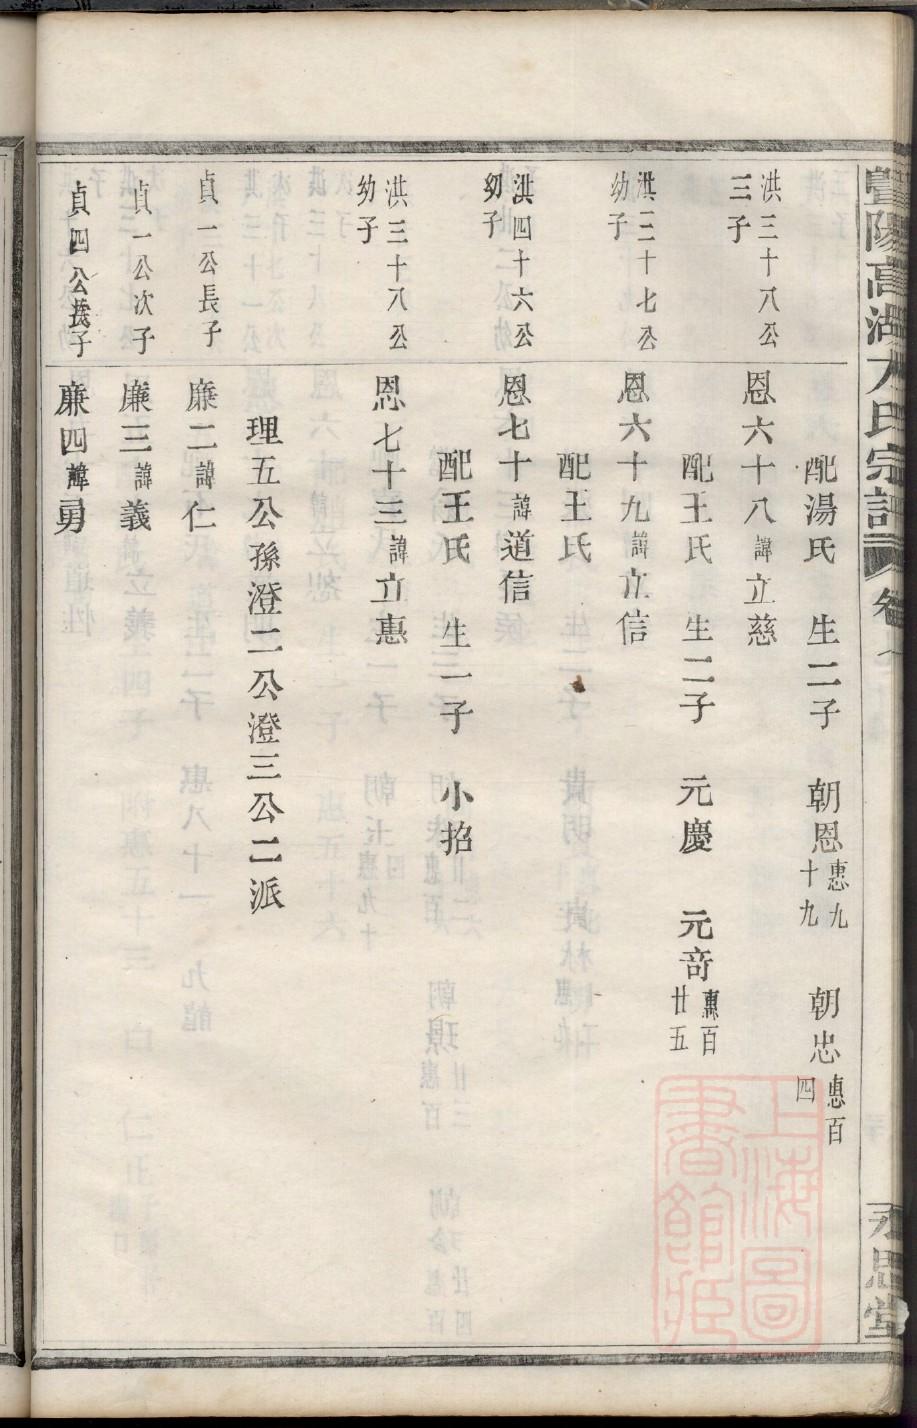 暨陽高湖方氏宗譜 卷 永思堂
配湯氏 生二子 朝恩惠九十九 朝忠惠百四
洪三十八公三子 恩六十八諱立慈
配王氏 生二子 元慶 元奇惠百廿五
洪三十七公幼子 恩六十九諱立信
配王氏
洪四十六公幼子 恩七十諱道信
配王氏 生一子 小招
洪三十八公幼子 恩七十三諱立惠
理五公孫澄二公澄三公二派
貞一公長子 廉二諱仁
貞一公次子 廉三諱義
貞四公長子 廉四諱勇
上海圖書館藏